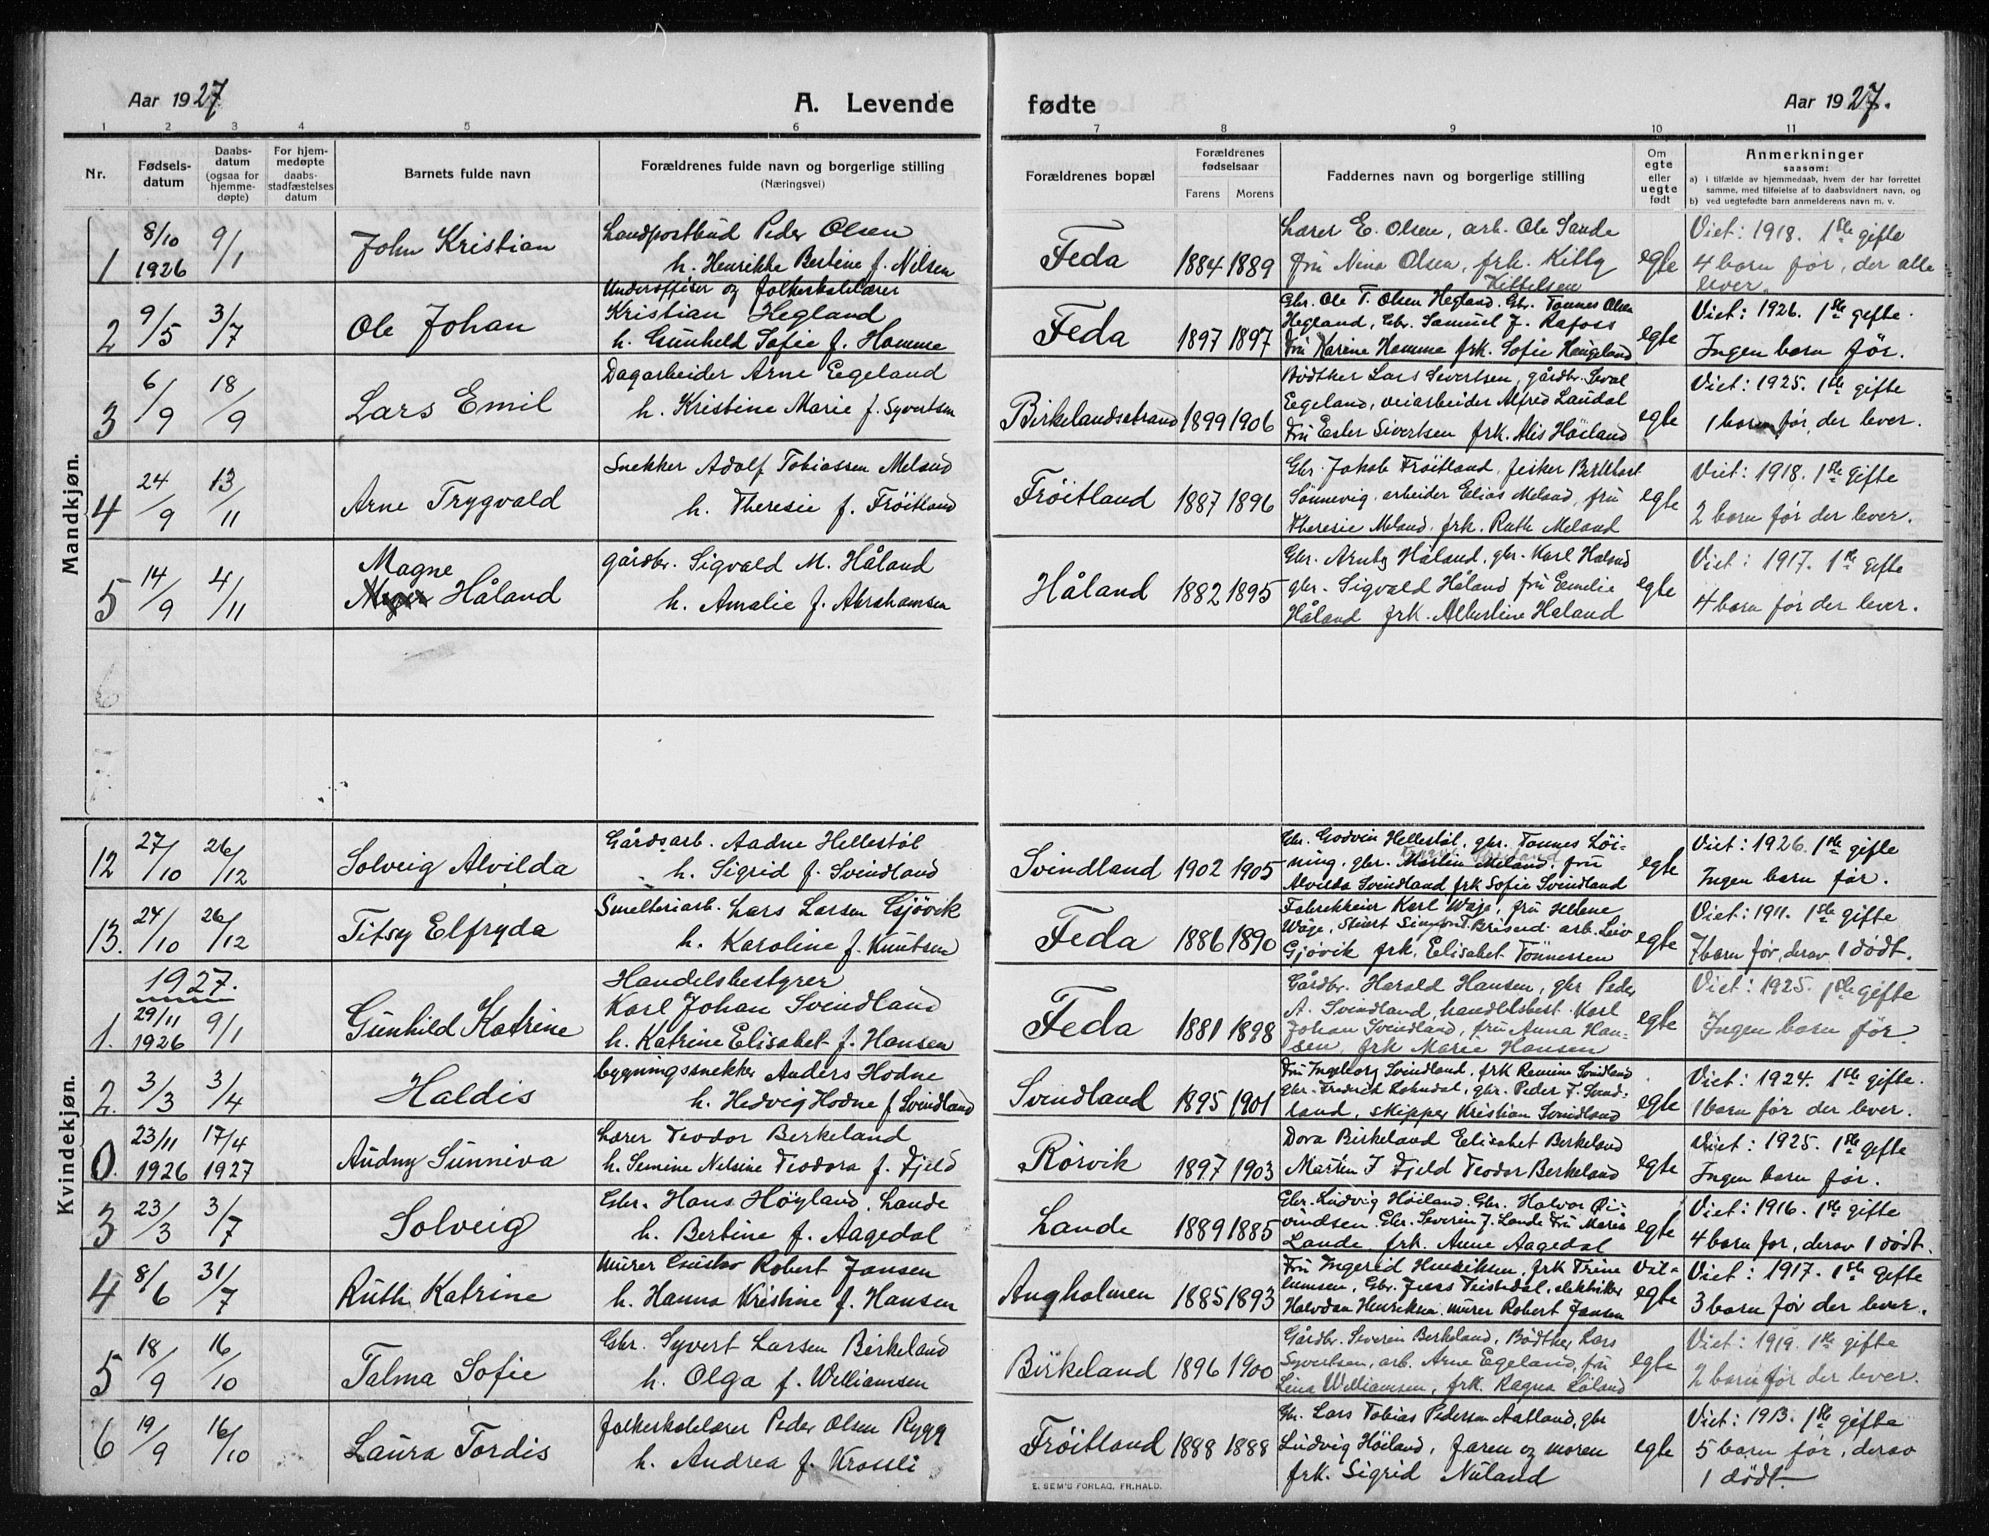 Aar 1927
A. Levende fødte
Aar 1927.
1 2 3 4 5 6 7 8 9 10 11
Nr.
Fødsels-datum
Daabs-datum (ogsaa for hjemme-døpte)
For hjem-medøpte daabs-stadfæstelses datum
Barnets fulde navn
Forældrenes fulde navn og borgerlige stilling
(Næringsvei)
Forældrenes bopæl
Forældrenes fødselsaar
Farens Morens
Faddernes navn og borgerlige stilling
Om egte eller uegte født
Anmerkninger
saasom:
a) i tilfælde av hjemmedaab, hvem der har forrettet samme, med tilføielse af to daabsvidners navn, og
b) ved uegtefødte barn anmelderens navn m. v.
Mandkjøn.
1 8/10 1926 9/1 John Kristian
Landpostbud Peder Olsen
h. Henrikke Bertine f. Nilsen
Feda 1884 1889
Lærer E. Olsen, arb. Ole Sande
fru Nina Olsen, frk. Kitty
Kittelsen
egte
Viet: 1918. 1ste gifte
4 barn før, der alle
lever.
2 9/5 3/7 Ole Johan
Underoffiser og folkeskolelærer
Kristian Hegland
h. Gunheld Sofie f. Homme
Feda 1897 1897
Gbr. Ole T. Olsen Hegland. Gbr. Tønnes Olsen
Hegland, Gbr. Samuel J. Rafoss
Fru Karine Homme frk. Sofie Haugeland
egte
Viet: 1926. 1ste gifte.
Ingen barn før.
3 6/9 18/9 Lars Emil
Dagarbeider Arne Egeland
h. Kristine Marie f. Syvertsen
Birkelandsstrand 1899 1906
Bødtker Lars Severtsen, gårdbr.
Egeland, veiarbeider Alfred Landal
Fru Ester Sivertsen frk. Alis Høiland
egte
Viet: 1925. 1ste gifte
1 barn før, der lever.
4 24/9 13/11 Arne Trygvald
Snekker Adolf Tobiassen Meland
h. Theresie f. Frøitland
Frøitland 1887 1896
Gbr. Jakob Frøitland, fisker
Sønnevig. arbeider Elias Meland, fru
Theresie Meland, frk. Ruth Meland
egte
Viet: 1918. 1ste Gifte
2 barn før der lever.
5 14/9 4/11 Magne
Håland
gårdbr. Sigvald M. Håland
h. Amalie f. Abrahamsen
Håland 1882 1895
Gbr. Arnt Håland, gbr. Karl Håland
gbr. Sigvald Håland fru Emelie
Håland frk. Albertine Håland
egte
Viet: 1917. 1ste gifte
4 barn før der lever.
6
Kvindekjøn.
12 27/10 26/12 Solveig Alvilda
Gårdsarb. Aadne Hellestøl
h. Sigrid f. Svindland
Svindland 1902 1905
Gbr. Godvin Hellestøl, gbr. Tønnes Løi-
ning, gbr. Martin Meland, fru
Alvilda Svindland frk Sofie Svindland
egte
Viet: 1926. 1ste gifte
Ingen barn før.
13. 24/10 26/12 Titsy Elfryda
Smelteriarb. Lars Larsen Gjøvik
h. Karoline f. Knutsen
Feda 1886 1890
Fabrikkeier Karl Waje, fru Helene
Waje, arb. Leiv
Gjøvik frk. Elisabet Tønnessen
egte
Viet: 1911. 1ste gifte
7 barn før, derav 1 dødt.
1927.
1. 29/11 1926 9/1 Gunhild Katrine
Handelsbestyrer
Karl Johan Svindland
h. Katrine Elisabet f. Hansen
Feda 1881 1898
Gårdbr. Harald Hansen, gbr Peder
A. Svindland, handelsbest. Karl
Johan Svindland, fru Anna Han-
sen, frk Marie Hansen
egte
Viet: 1925. 1ste gifte
Ingen barn før.
2. 3/3 3/4 Haldis
bygningssnekker Anders Hodne
h. Hedvig Hodne f Svindland
Svindland 1895 1901
Fru Ingeborg Svindland, frk Remine Svindland
Gbr. Fredrich Lohndal, gbr. Peder F. Svind-
land, skipper Kristian Svindland
egte
Viet: 1924. 1ste gifte.
1 barn før der lever.
0. 23/11 1926 17/4 1927 Audny Sunniva
Lærer Teodor Berkeland
h. Semine Nelsine Teodora f. Fjeld
Rørvik 1897 1903
Dora Birkeland Elisabet Berkeland
Marten J Fjeld Teodor Berkeland
egte
Viet: 1925. 1ste gifte
Ingen barn før.
3 23/3 3/7 Solveig
Gbr. Hans Høyland, Lande
h. Bertine f. Aagedal
Lande 1889 1885
Gbr. Ludvig Høiland. Gbr. Halvor Øi-
vindsen. Gbr. Severin J. Lande Fru Marie
Lande frk. Anne Aagedal
egte
Viet: 1916. 1ste gifte
4 barn før, derav 1 dødt.
4 8/6 31/7 Ruth Katrine
Murer Gustav Robert Jansen
h. Hanna Kristine f. Hansen
Angholmen 1885 1893
Fru Ingerid Henriksen, frk Trine Vil-
lumsen, Gbr. Jess Teistedal, elektriker
Halvdan Henriksen. murer Robert Jansen
egte
Viet: 1917. 1ste gifte
3 barn før der lever.
5 18/9 16/10 Talma Sofie
Gbr. Syvert Larsen Birkeland
h. Olga f. Welliamsen
Birkeland 1896 1900
Gårdbr. Severin Berkeland, Bødtker Lars
Syvertsen, arb. Arne Egeland, fru
Lina Williamsen, frk. Ragna Løland
egte
Viet: 1919. 1ste gifte
2 barn før der lever.
6 19/9 16/10 Laura Tordis
folkeskolelærer Peder Olsen Rygg
h. Andrea f. Krossli
Frøitland 1888 1888
Gbr. Lars Tobias Pedersen Aatland, gbr
Ludvig Høiland, faren og moren
frk. Sigrid Nuland
egte
Viet: 1913. 1ste gifte
5 barn før, derav
1 dødt.
E. SEM'S FORLAG, FR.HALD.